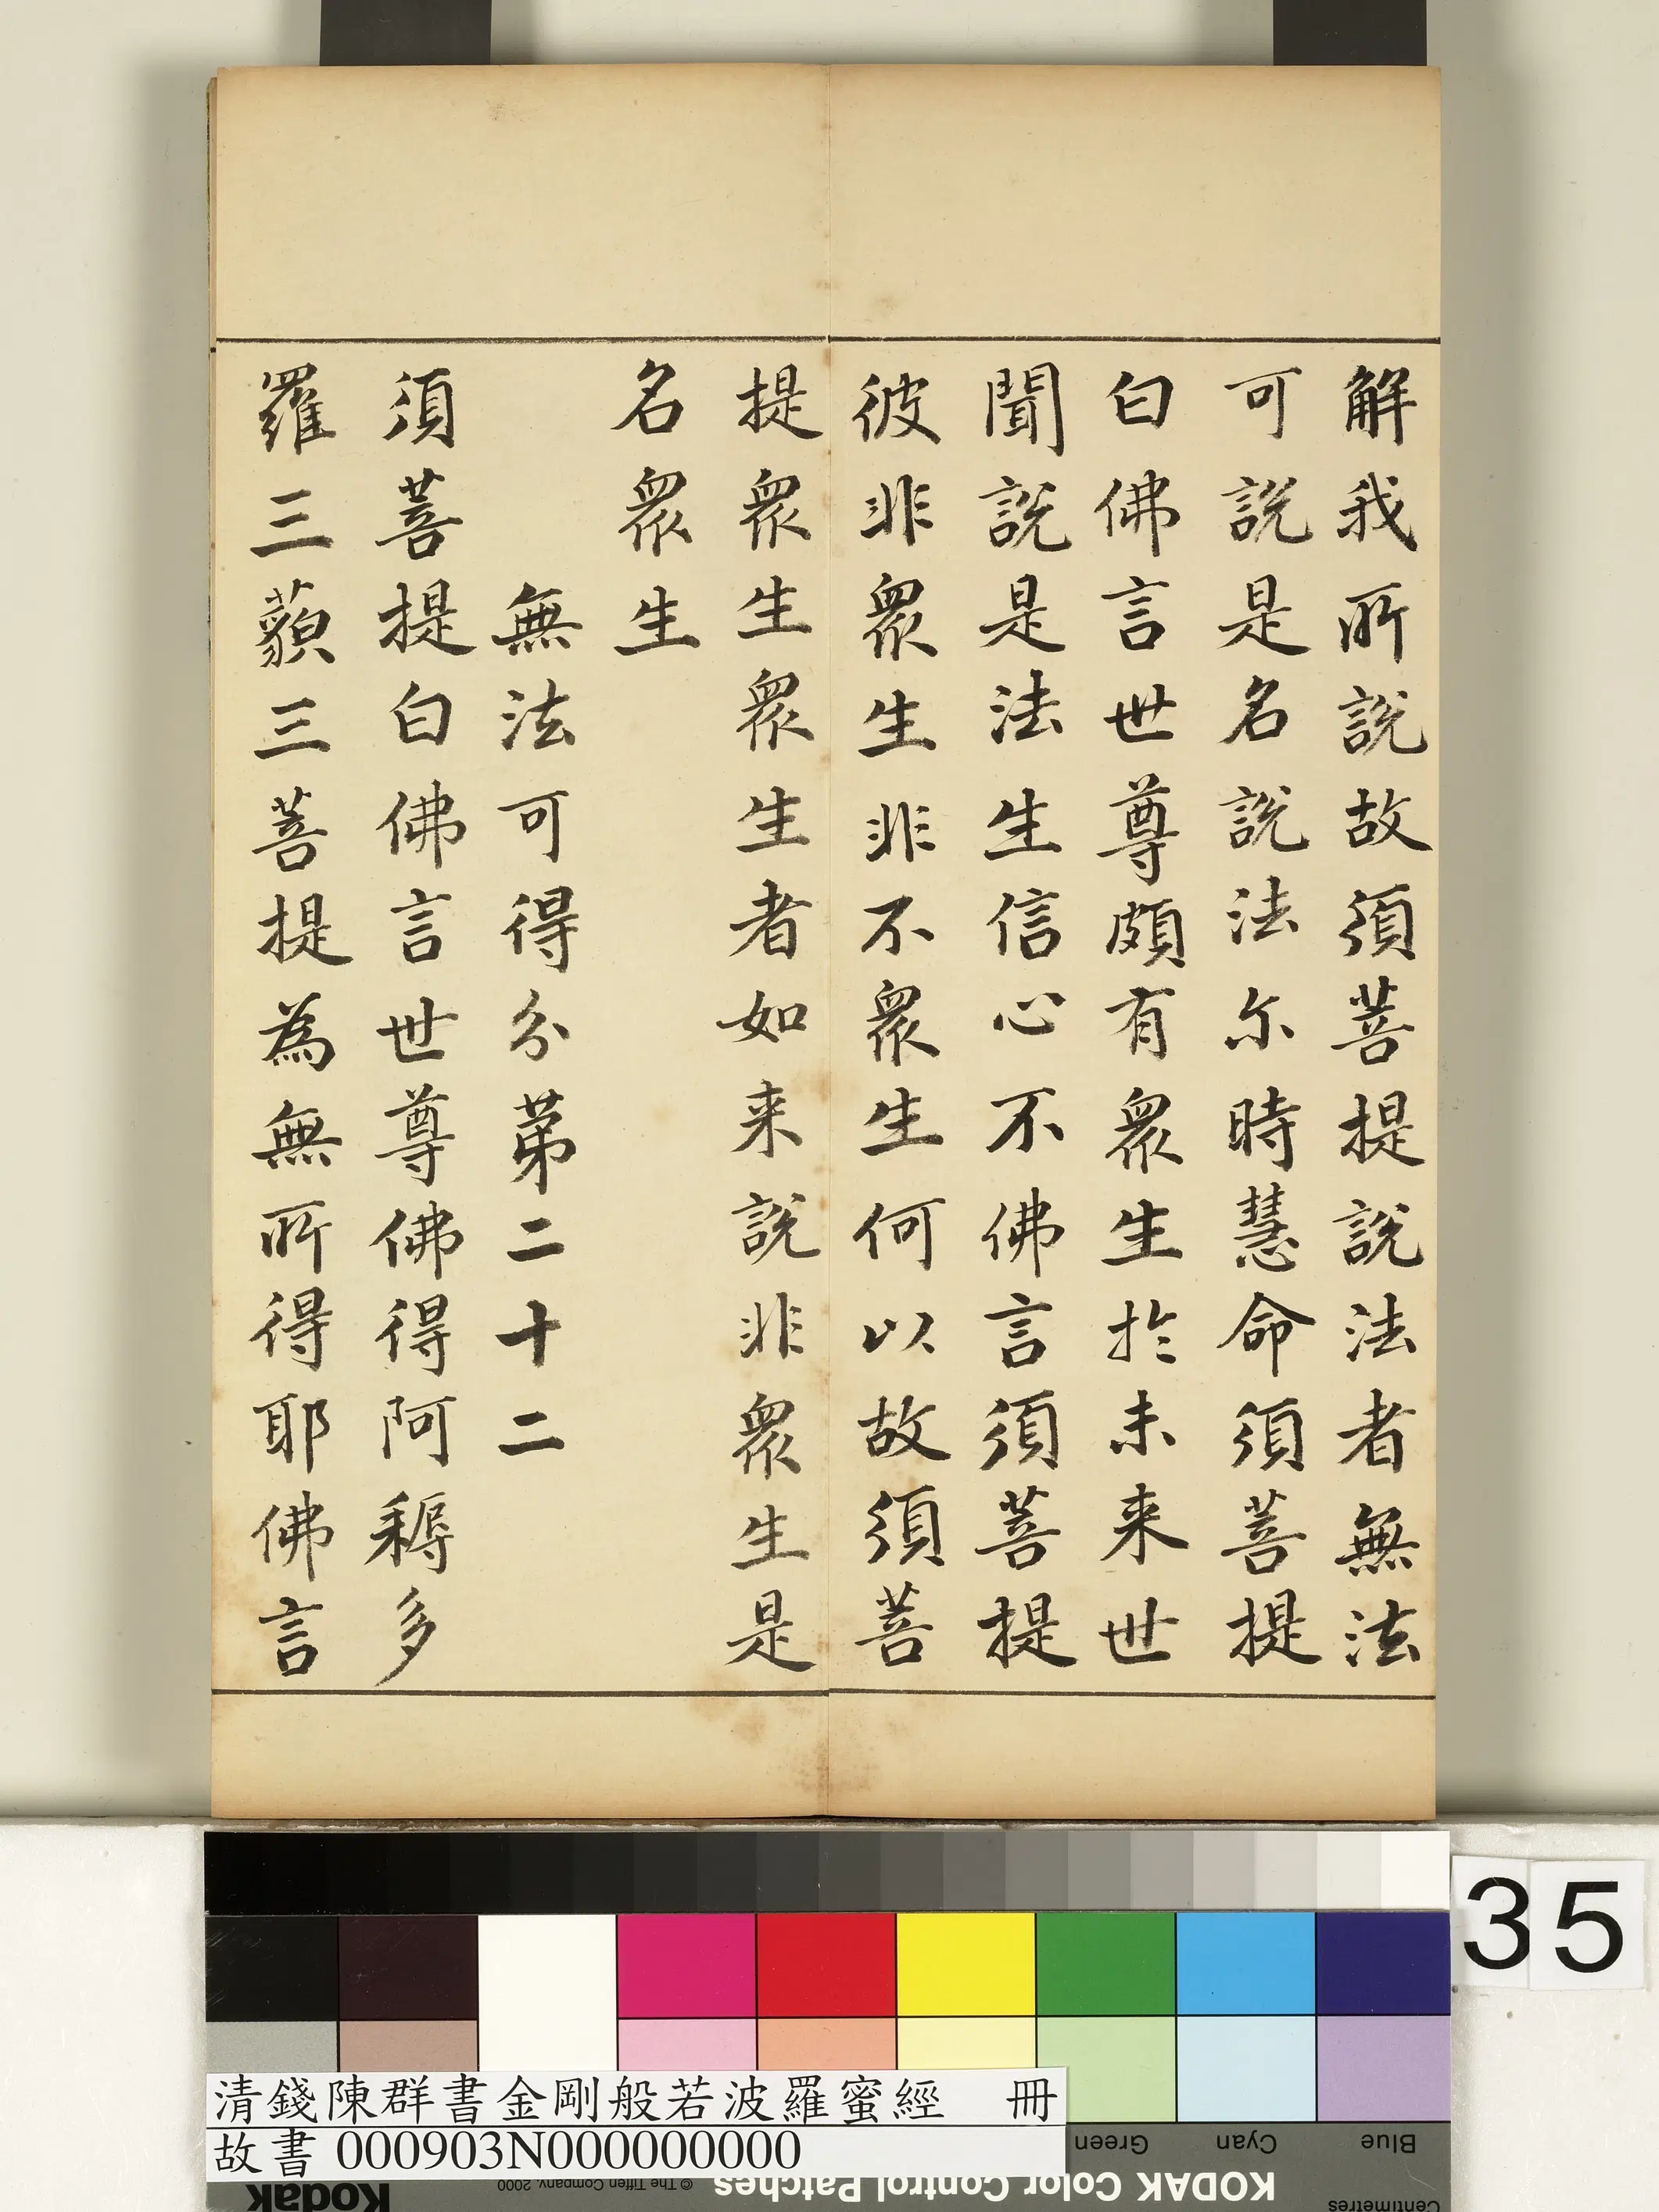 解我所說故須菩提說法者無法
可說是名說法尔時慧命須菩提
白佛言世尊頗有衆生於未来世
聞說是法生信心不佛言須菩提
彼非衆生非不衆生何以故須菩
提衆生衆生者如来說非衆生是
名衆生
無法可得分第二十二
須菩提白佛言世尊佛得阿耨多
羅三藐三菩提為無所得耶佛言
35
清錢陳群書金剛般若波羅蜜經 冊
故書 000903N000000000
Blue Cyan Green
KODAK Color Control Patches
© The Tiffen Company, 2000
Kodak
Centimetres